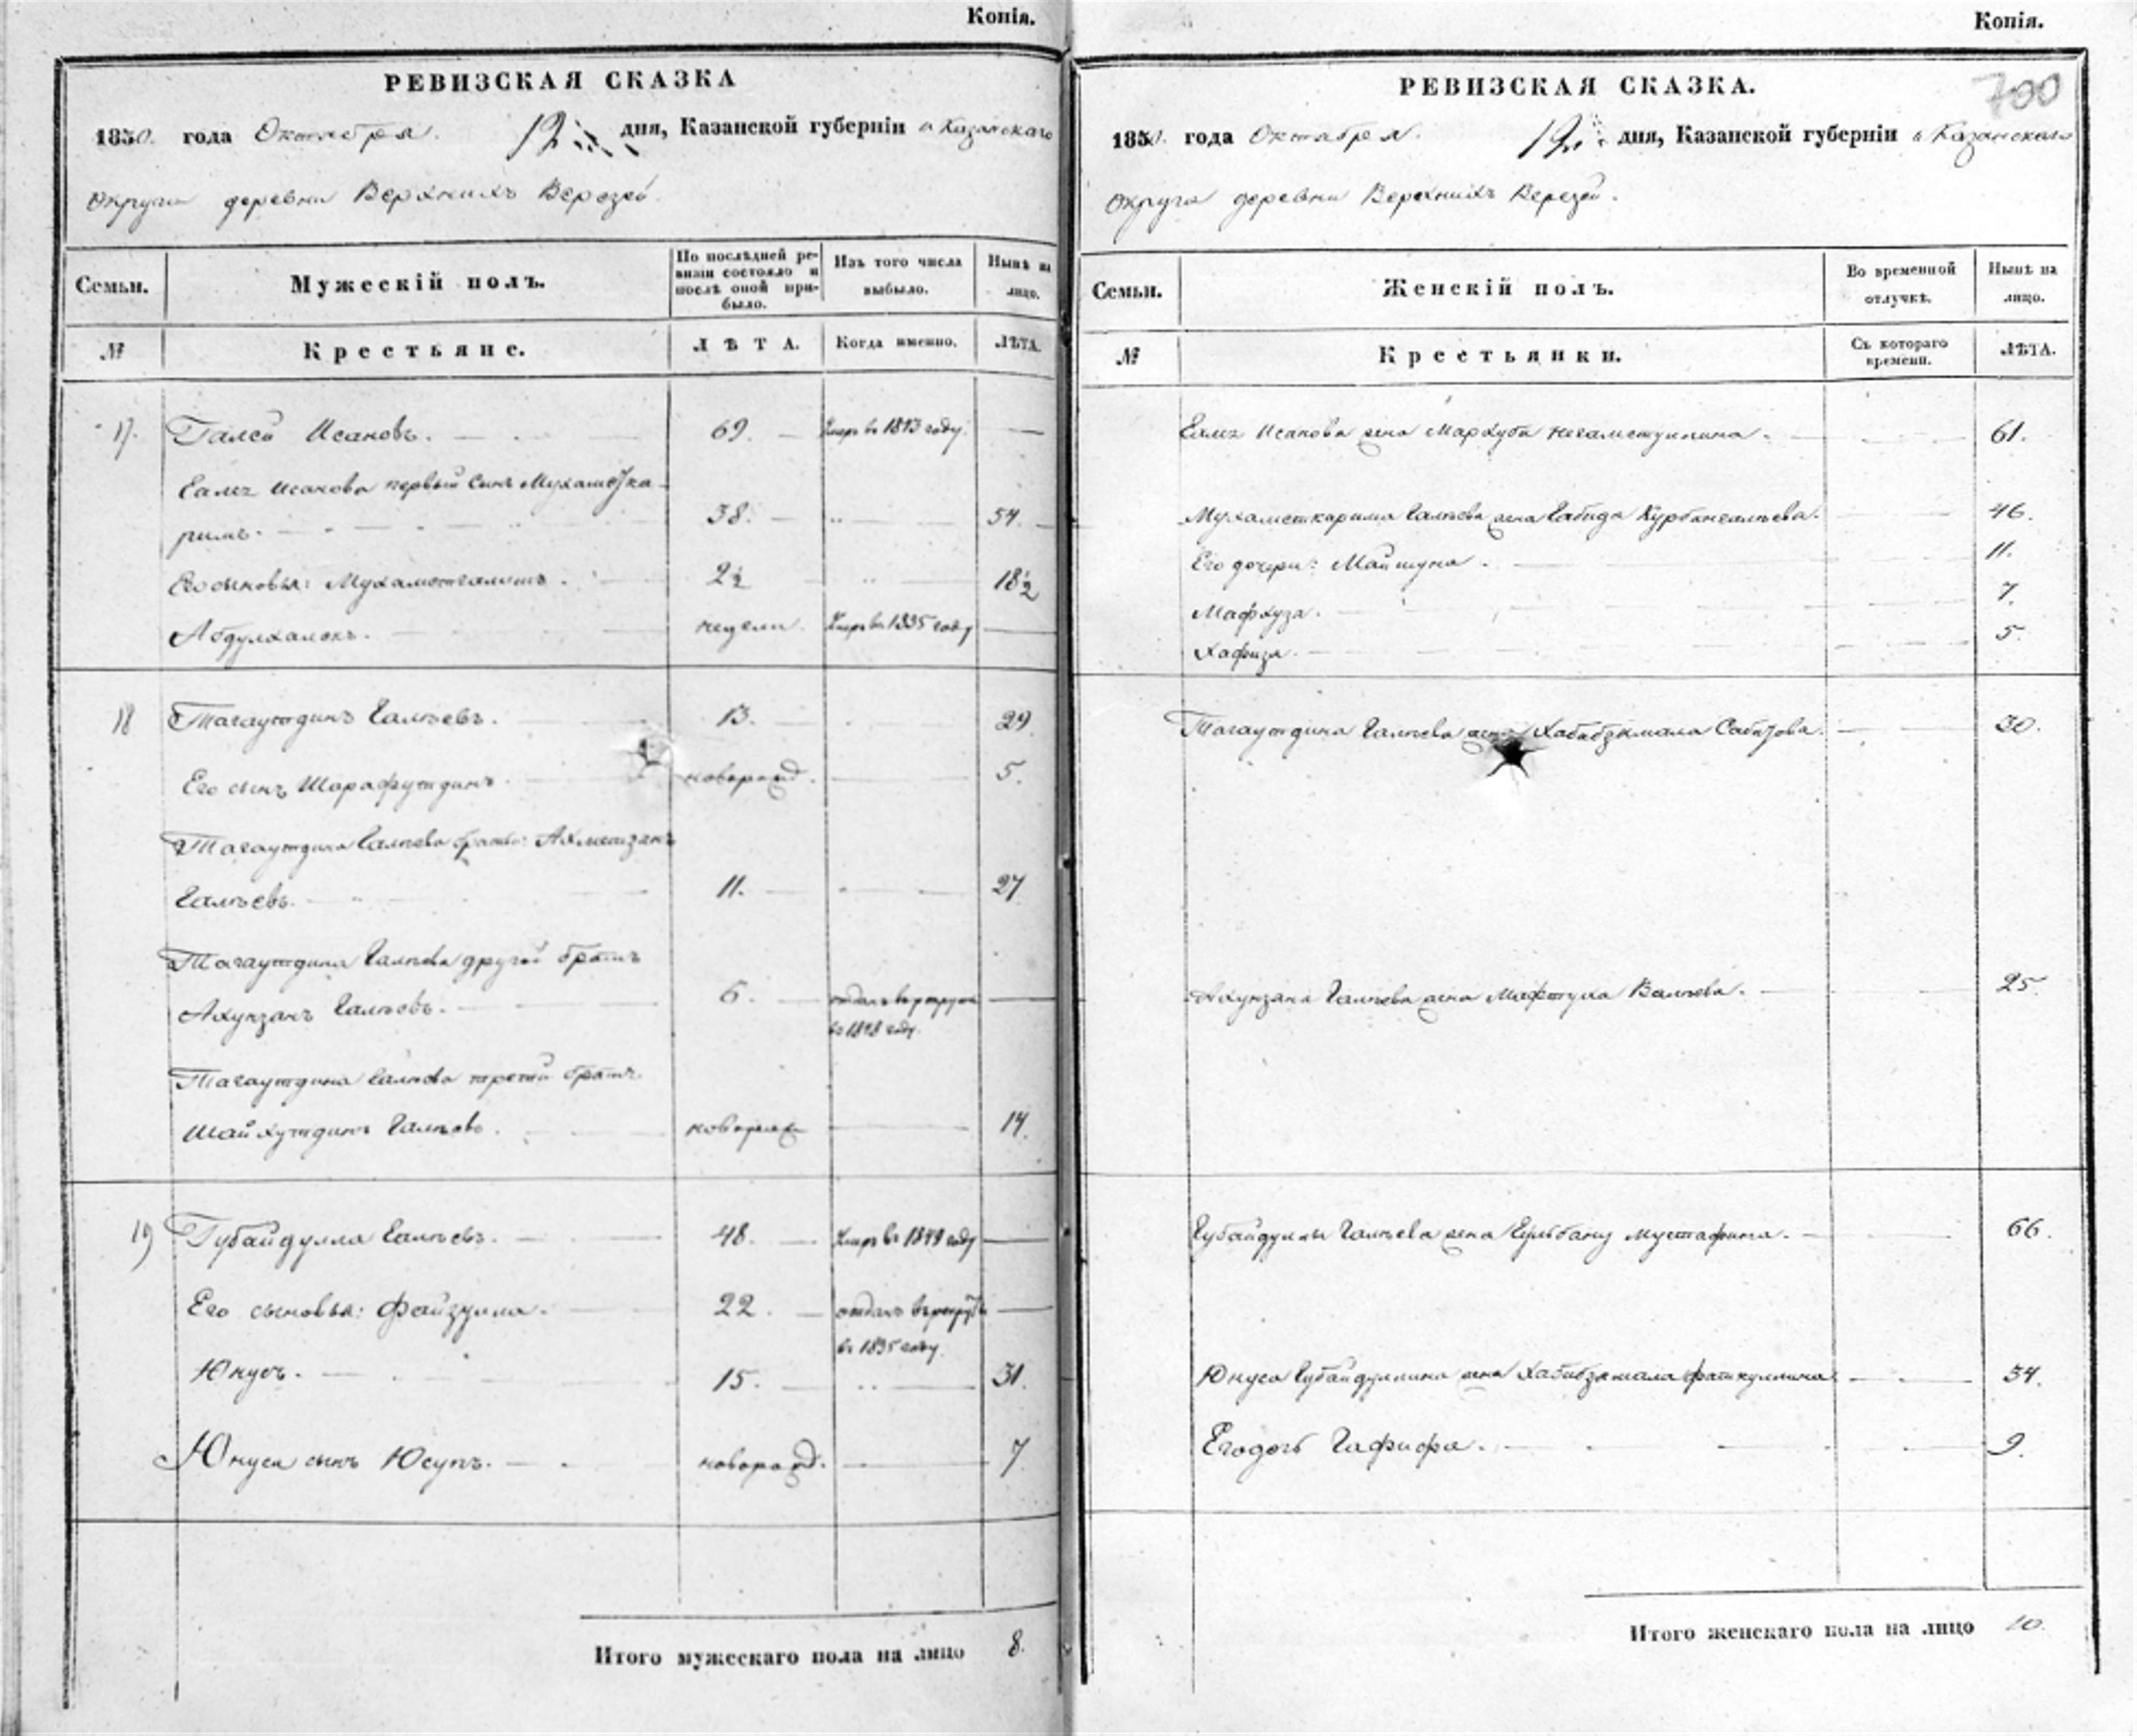 Копія.
РЕВИЗСКАЯ СКАЗКА
1850. года Октября. 12 дня, Казанской губерніи и Казанскаго
округи деревни Верхнихъ Верезей.
Семьи.
Мужескій полъ.
По послѣдней ре-
визіи состояло и
послѣ оной при-
было.
Изъ того числа
выбыло.
Нынѣ на
лицо.
№
Крестьяне.
ЛѢТА.
Когда именно.
ЛѢТА.
17. Галей Исаковъ. 69. Умеръ в 1843 году.
Галея Исакова первый сынъ Мухаметка-
римъ. 38. 54.
Его сыновья: 2½ 18½
Абдулхаликъ. недели. Умеръ в 1835 году
18 Тагаутдинъ Галѣевъ. 13. 29.
Его сынъ Шарафутдинъ. новорожд. 5.
Тагаутдина Галѣева братья: Ахметзянъ
Галѣевъ. 11. 27
Тагаутдина Галѣева другой братъ
Ахунзянъ Галѣевъ. 6. отданъ в рекруты
в 1848 году.
Тагаутдина Галѣева третій братъ
Шайхутдинъ Галѣевъ. новорожд 14.
19 Губайдулла Галѣевъ. 48. Умеръ в 1849 году
Его сыновья: Файзулла. 22. отданъ в рекруты
в 1835 году.
Юнусъ. 15. 31.
Юнуса сынъ Юсупъ. новорожд. 7
Итого мужескаго пола на лицо 8.
Копія.
700
РЕВИЗСКАЯ СКАЗКА.
1850. года Октября. 12 дня, Казанской губерніи и Казанскаго
округа деревни Верхнихъ Верезей.
Семьи.
Женскій полъ.
Во временной
отлучкѣ.
Нынѣ на
лицо.
№
Крестьянки.
Съ котораго
времени.
ЛѢТА.
Галея Исакова жена Мархуба 61.
Мухаметкарима Галѣева жена Габида Курбангалѣева. 46.
Его дочери: Маймуна. 11.
Мафхуза. 7.
Хафиза. 5.
Тагаутдина Галѣева жена Хабибзямала Сабитова. 30.
Ахунзяна Галѣева жена Мафтуха Валѣева. 25
Губайдуллы Галѣева жена Гульбану Мустафина. 66.
Юнуса Губайдуллина жена Хабибзямала Фаткуллина 34.
Его дочь Гафифа. 9.
Итого женскаго пола на лицо 10.